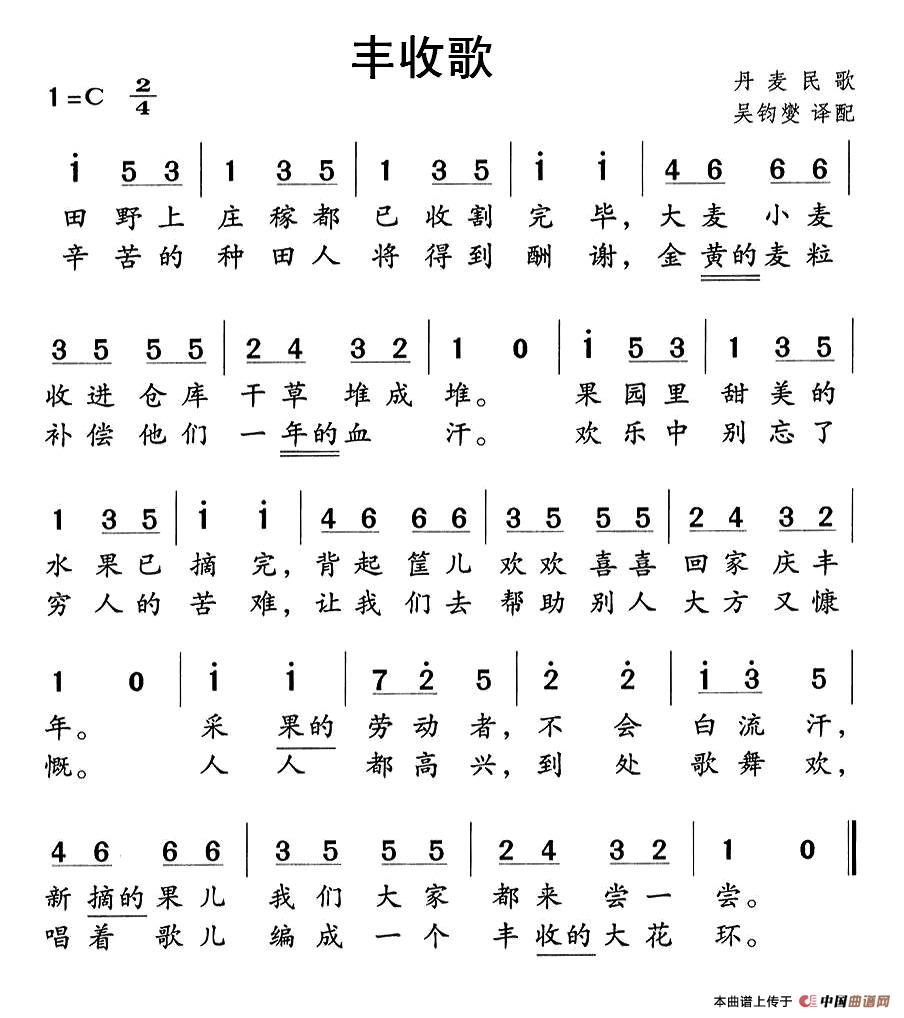 丰收歌
1=C 2/4
丹麦民歌
吴钧燮 译配
i 5 3 | 1 3 5 | 1 3 5 | i i | 4 6 6 6 |
田野上庄稼都已收割完毕，大麦小麦
辛苦的种田人将得到酬谢，金黄的麦粒
3 5 5 5 | 2 4 3 2 | 1 0 | i 5 3 | 1 3 5 |
收进仓库干草堆成堆。果园里甜美的
补偿他们一年的血汗。欢乐中别忘了
1 3 5 | i i | 4 6 6 6 | 3 5 5 5 | 2 4 3 2 |
水果已摘完，背起筐儿欢欢喜喜回家庆丰
穷人的苦难，让我们去帮助别人大方又慷
1 0 | i i | 7 2 5 | 2 2 | i 3 5 |
年。采果的劳动者，不会白流汗，
慨。人人都高兴，到处歌舞欢，
4 6 6 6 | 3 5 5 5 | 2 4 3 2 | 1 0 ‖
新摘的果儿我们大家都来尝一尝。
唱着歌儿编成一个丰收的大花环。
本曲谱上传于 中国曲谱网